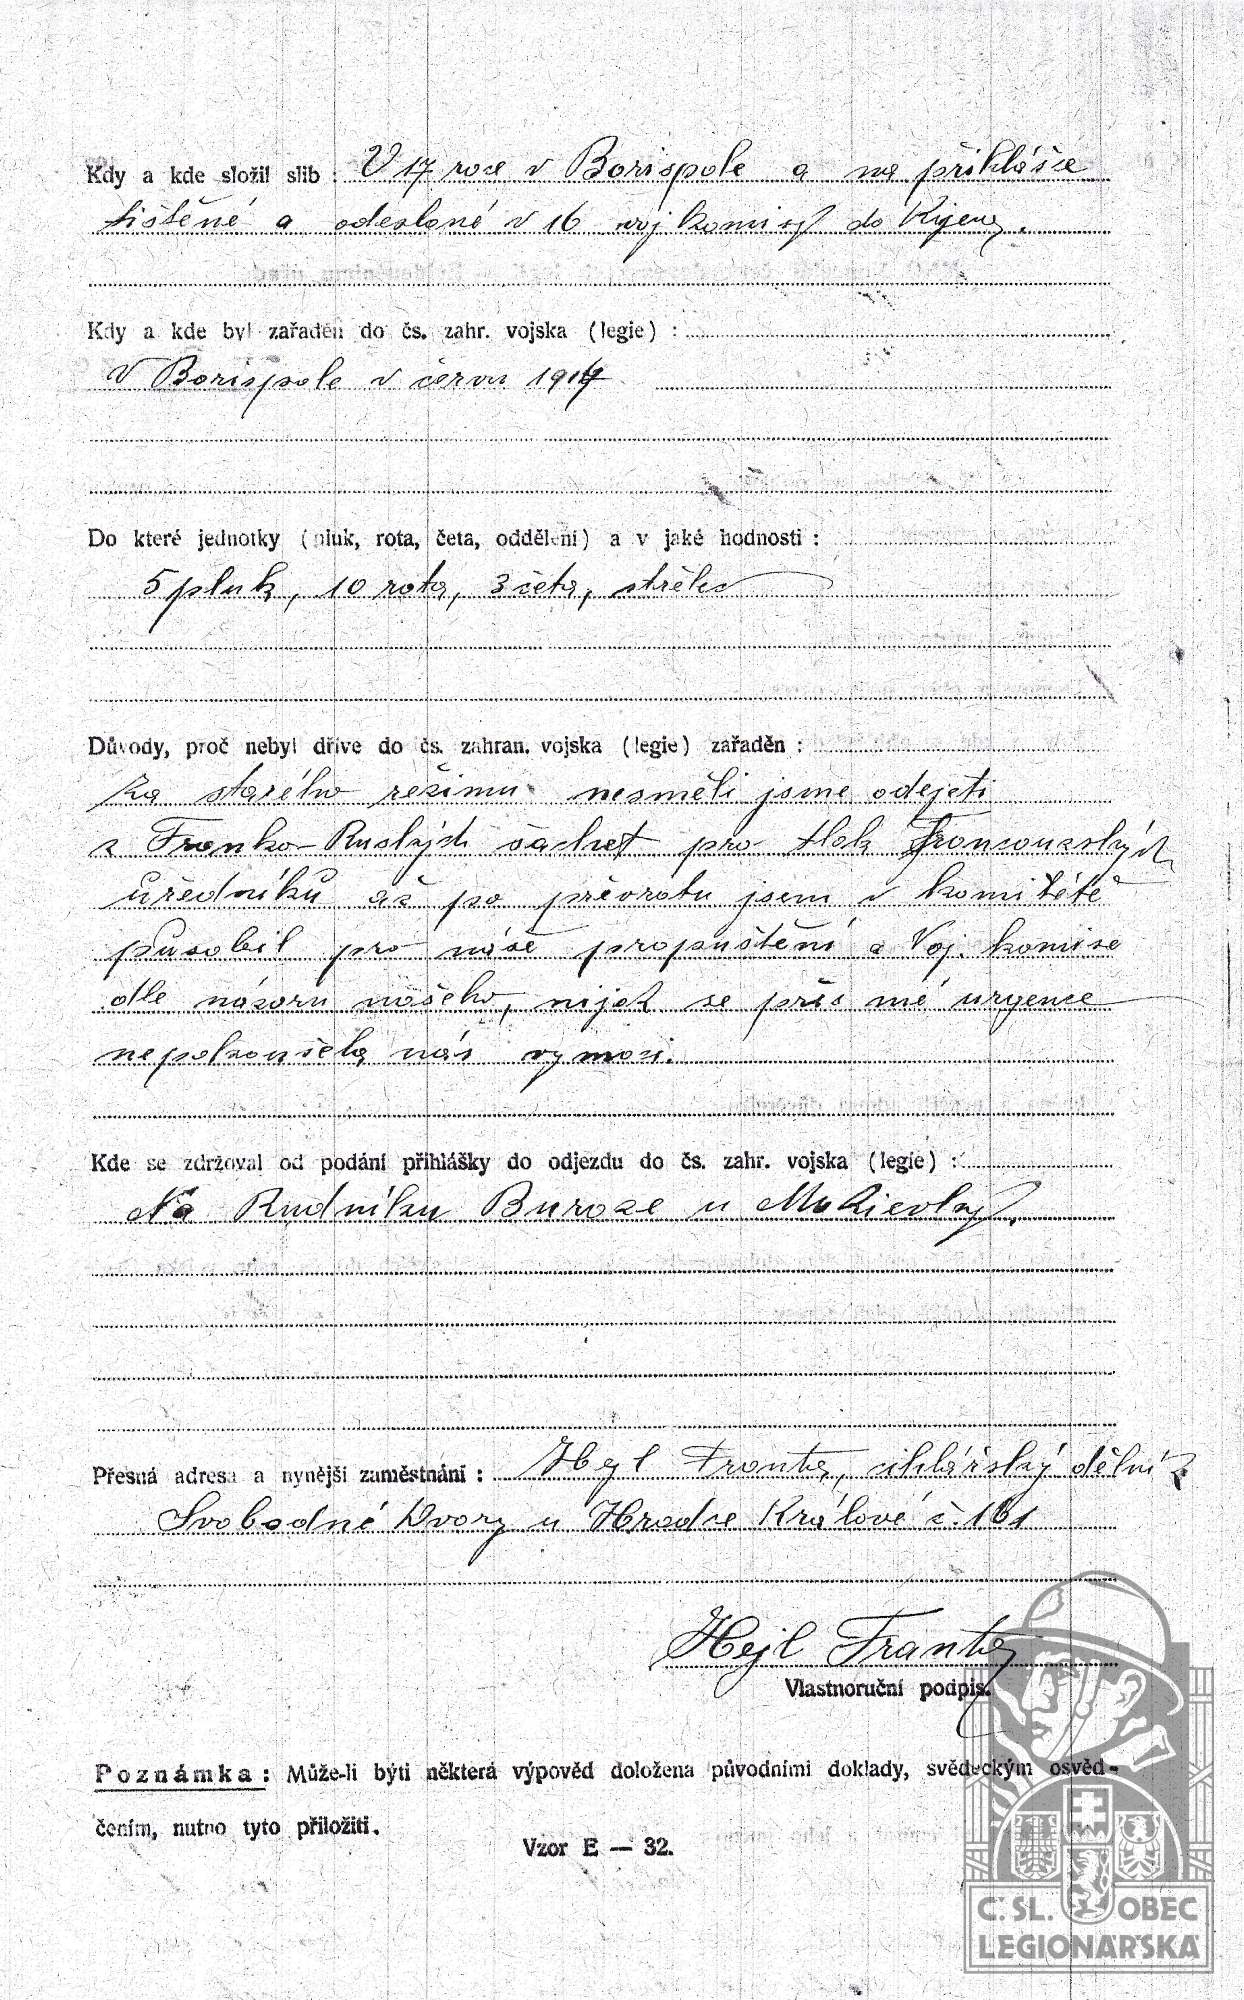 Kdy a kde složil slib : V 17 roce v Borispole a na přihlášce
tištěné a odeslané v 16 voj komisy do Kijeva.
Kdy a kde byl zařaděn do čs. zahr. vojska (legie) :
V Borispole v červnu 1917
Do které jednotky (pluk, rota, četa, oddělení) a v jaké hodnosti :
5 pluk, 10 rota, 3 četa, střelec
Důvody, proč nebyl dříve do čs. zahran. vojska (legie) zařaděn :
Za starého režimu nesměli jsme odejeti
z Franko-Ruských šachet pro tlak Francouzských
úředníků až po převratu jsem v komitétě
působil pro náše propuštění a Voj. komise
dle názoru našeho, nijak se přes mé urgence
nepokoušela nás vymoci.
Kde se zdržoval od podání přihlášky do odjezdu do čs. zahr. vojska (legie) :
Na Rudníku Buroze u Makievky.
Přesná adresa a nynější zaměstnání : Hejl Franta, cihlářský dělník
Svobodné Dvory u Hradce Králové č. 161
Hejl Franta
Vlastnoruční podpis.
Poznámka : Může-li býti některá výpověd doložena původními doklady, svědeckým osvěd-
čením, nutno tyto přiložiti.
Vzor E — 32.
Č. SL. OBEC
LEGIONÁŘSKÁ